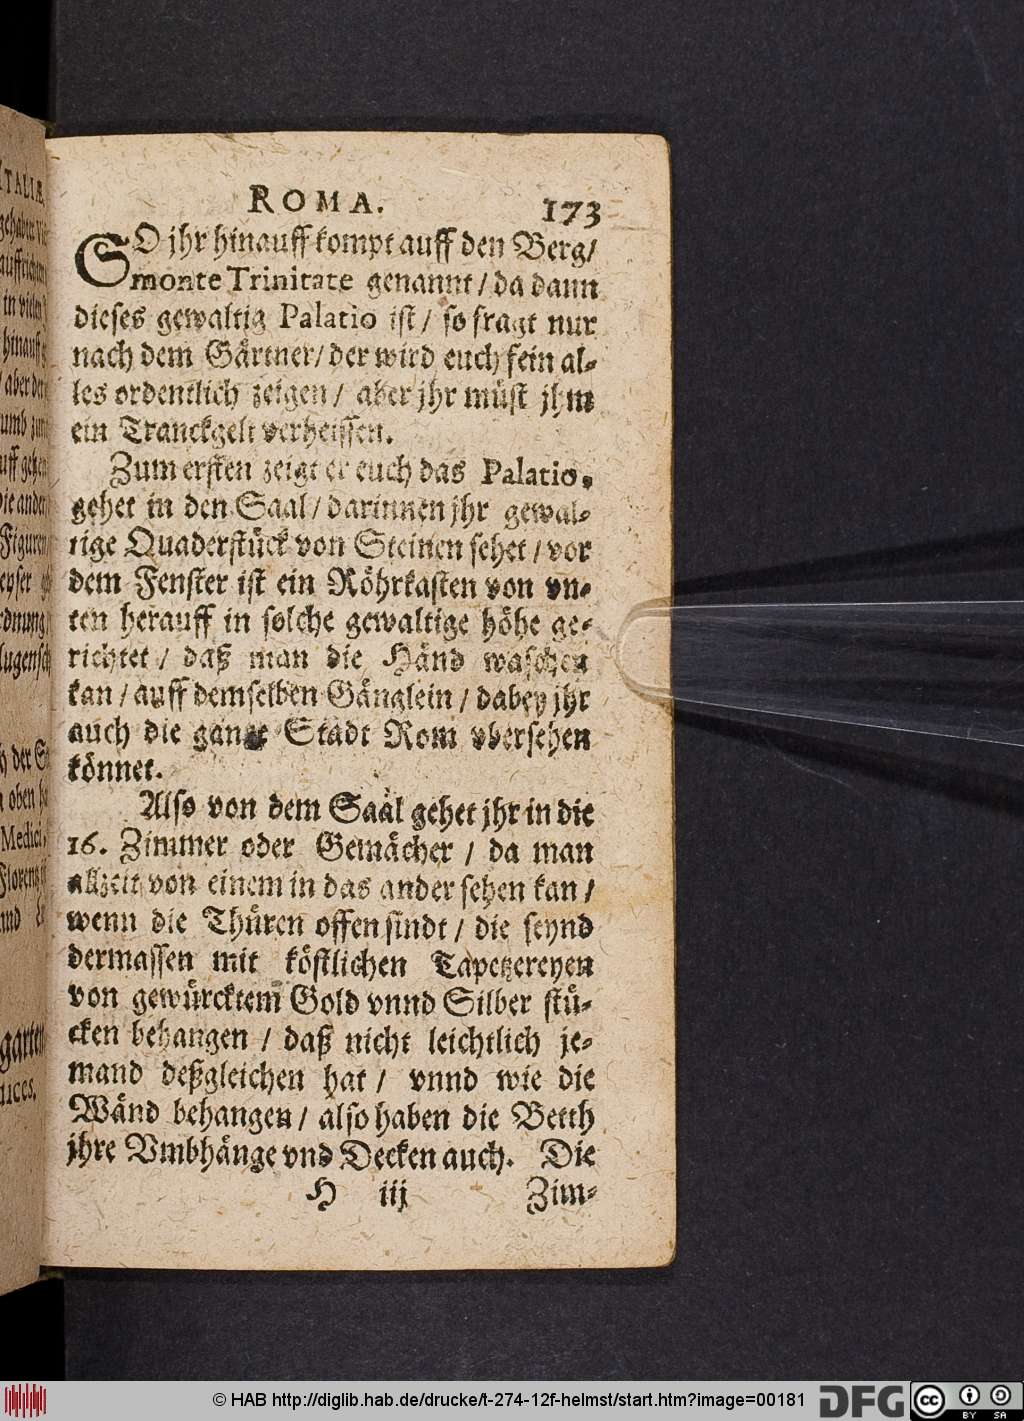 ROMA. 173
SO jhr hinauff kompt auff den Berg/
monte Trinitate genannt / da dann
dieses gewaltig Palatio ist / so fragt nur
nach dem Gärtner/ der wird euch fein al-
les ordentlich zeigen / aber jhr müst jhm
ein Tranckgelt verheissen.
Zum ersten zeigt er euch das Palatio,
gehet in den Saal / darinnen jhr gewal-
tige Quaderstück von Steinen sehet / vor
dem Fenster ist ein Röhrkasten von vn-
ten herauff in solche gewaltige höhe ge-
richtet / daß man die Händ waschen
kan / auff demselben Gänglein / dabey jhr
auch die gantze Stadt Rom vbersehen
könnet.
Also von dem Saal gehet jhr in die
16. Zimmer oder Gemächer / da man
allzeit von einem in das ander sehen kan /
wenn die Thüren offen sindt / die seynd
dermassen mit köstlichen Tapetzereyen
von gewürcktem Gold vnnd Silber stü-
cken behangen / daß nicht leichtlich je-
mand deßgleichen hat / vnnd wie die
Wänd behangen / also haben die Betth
jhre Vmbhänge vnd Decken auch. Die
H iij Zim-
© HAB http://diglib.hab.de/drucke/t-274-12f-helmst/start.htm?image=00181
DFG
cc BY SA